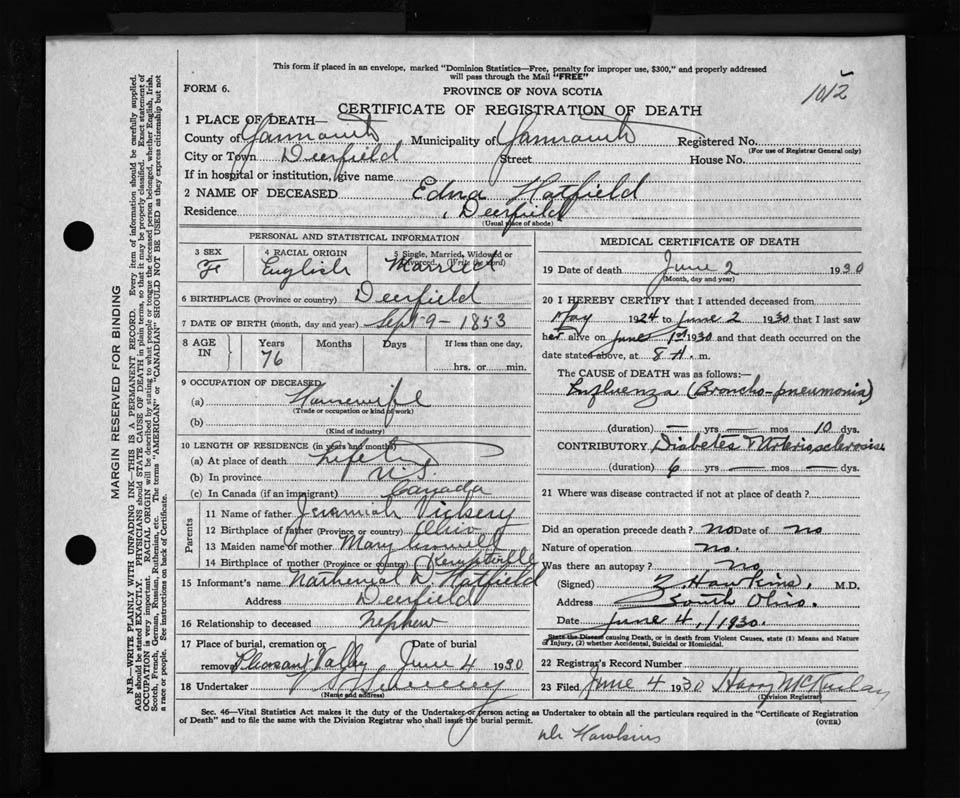 This form if placed in an envelope, marked "Dominion Statistics—Free, penalty for improper use, $300," and properly addressed
will pass through the Mail "FREE"
FORM 6.
PROVINCE OF NOVA SCOTIA
1012
CERTIFICATE OF REGISTRATION OF DEATH
1 PLACE OF DEATH—
County of Yarmouth Municipality of Yarmouth Registered No.
(For use of Registrar General only)
City or Town Deerfield Street House No.
If in hospital or institution, give name
2 NAME OF DECEASED Edna Hatfield
Residence Deerfield
(Usual place of abode)
PERSONAL AND STATISTICAL INFORMATION
3 SEX 4 RACIAL ORIGIN 5 Single, Married, Widowed or Divorced. (Write the word)
Fe English Married
6 BIRTHPLACE (Province or country) Deerfield
7 DATE OF BIRTH (month, day and year) Sept-9-1853
8 AGE IN Years Months Days If less than one day,
76 hrs. or min.
9 OCCUPATION OF DECEASED
(a) Housewife
(Trade or occupation or kind of work)
(b)
(Kind of industry)
10 LENGTH OF RESIDENCE (in years and months)
(a) At place of death Life
(b) In province
(c) In Canada (if an immigrant) Canada
Parents
11 Name of father Jeremiah Vickery
12 Birthplace of father (Province or country) Ohio
13 Maiden name of mother Mary
14 Birthplace of mother (Province or country) Kemptville
15 Informant's name Nathenial D. Hatfield
Address Deerfield
16 Relationship to deceased Nephew
17 Place of burial, cremation or removal Date of burial
Pleasant Valley June 4 1930
18 Undertaker
(Name and address)
MEDICAL CERTIFICATE OF DEATH
19 Date of death June 2 1930
(Month, day and year)
20 I HEREBY CERTIFY that I attended deceased from
May 1924 to June 2 1930 that I last saw
her alive on June 1st 1930 and that death occurred on the
date stated above, at 8 A. m.
The CAUSE OF DEATH was as follows:—
Influenza (Broncho-pneumonia)
(duration) — yrs — mos 10 dys.
CONTRIBUTORY Diabetes
(duration) 6 yrs — mos — dys.
21 Where was disease contracted if not at place of death?
Did an operation precede death? no Date of no
Nature of operation no.
Was there an autopsy? no
(Signed) Z Hawkins, M.D.
Address South Ohio.
Date June 4, / 1930.
State the Disease causing Death, or in death from Violent Causes, state (1) Means and Nature
of Injury, (2) whether Accidental, Suicidal or Homicidal.
22 Registrar's Record Number
23 Filed June 4 1930 Harry
(Division Registrar)
Sec. 46—Vital Statistics Act makes it the duty of the Undertaker or person acting as Undertaker to obtain all the particulars required in the "Certificate of Registration
of Death" and to file the same with the Division Registrar who shall issue the burial permit. (OVER)
Dr Hawkins
MARGIN RESERVED FOR BINDING
N.B.—WRITE PLAINLY WITH UNFADING INK—THIS IS A PERMANENT RECORD. Every item of information should be carefully supplied.
AGE should be stated EXACTLY. PHYSICIANS should STATE CAUSE OF DEATH in plain terms, so that it may be properly classified. Exact statement of
OCCUPATION is very important. RACIAL ORIGIN will be described by stating to what people or tongue the deceased person belonged, whether English, Irish,
Scotch, French, German, Russian, Ruthenian, etc. The terms "AMERICAN" or "CANADIAN" SHOULD NOT BE USED as they express citizenship but not
a race or people. See instructions on back of Certificate.